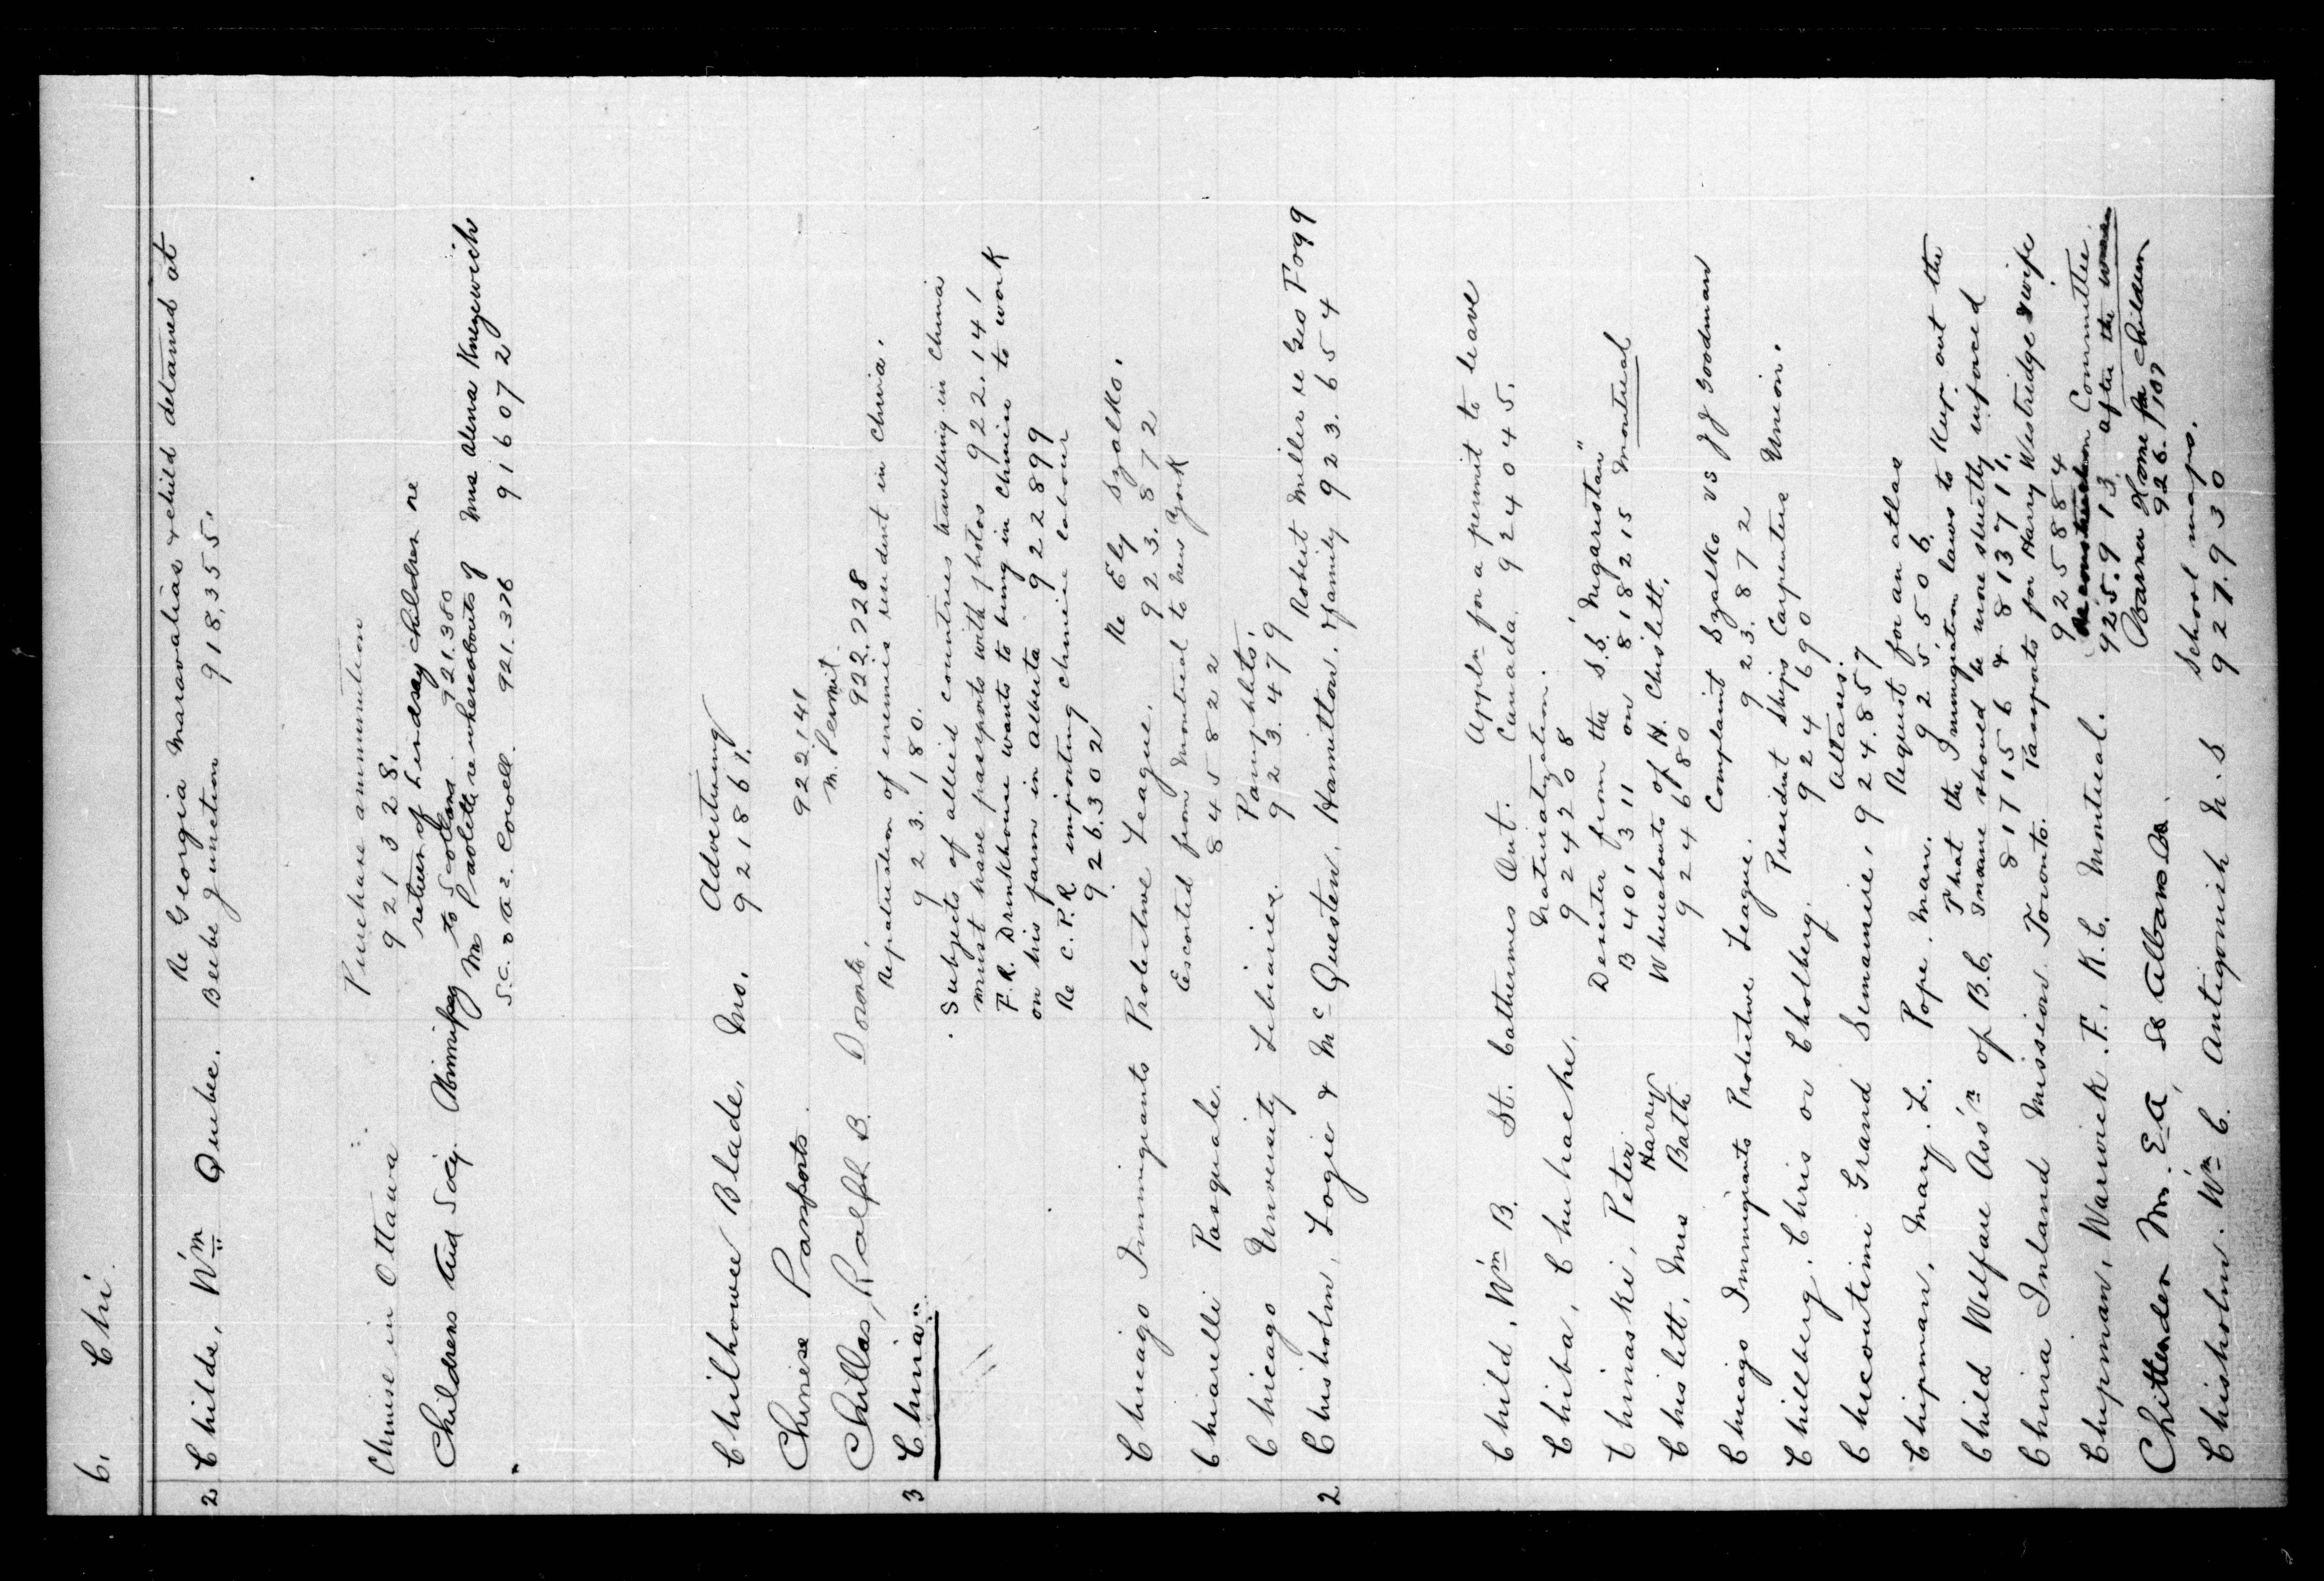 C. Chi.
Re Georgia Maravalias & child detained at
2 Childs, Wm Quebec. Beebe Junction 918,355.
Purchase ammunition
Chinese in Ottawa 921328.
return of Lindsay children re
Childrens Aid Socy. to Scotland 921.380
Mr Paolette re whereabouts of Mrs Alena Knezewich
S.C. 921.376 916072
Chilhowee Blade, Mo. Advertising
921861.
Chinese Passports 922141
M. Permit.
Chillas, Ralph B. 922.728
Repatriation of enemies resident in China.
3 China: 923.180.
Subjects of allied countries travelling in China
must have passports with photos 922.141
F.R. Drinkhouse wants to bring in Chinese to work
on his farm in Alberta 922899
Re C.P.R. importing Chinese labour
926.302
Re Ely Szalko.
Chicago Immigrants Protective League. 923.872
Escorted from Montreal to New York
Chiarelli Pasquale. 845822
Pamphlets.
Chicago University Libraries. 923.479
Robert Miller re Geo Fogg
2 Chisholm, Logie & McQuesten, Hamilton. & family 923.654
Appln for a permit to leave
Child, Wm B. St. Catherines Ont. Canada. 924045.
Naturalization.
Chiba, Chuhache. 924208
Deserter from the S.S. "Nigaristan"
Chinaski, Peter B 401311 on 818215 Montreal
Harry Whereabouts of H. Chislett.
Chislett, Mrs Bath 924680
Complaint Szalko vs J J Goodman
Chicago Immigrants Protective League. 923.872
President Ships Carpenters Union.
Chillberg, Chris or Cholberg. 924690
Altars.
Chicoutimi Grand Seminaire, 924.857
Request for an atlas
Chipman, Mary. L. Pope. Man. 925506.
That the Immigration laws to keep out the
Child Welfare Ass'n of B.C. Insane should be more strictly inforced
817156 & 813711.
China Inland Mission. Toronto. Passports for Harry Westridge & wife
925884
Reconstruction Committee
Chipman, Warwick. F., K.C. Montreal. 925.913 after the war
Barra Home for Children
Chittenden Mr. E A, St Albans 926.107
School maps.
Chisholm. Wm C. Antigonish N.S 927.930